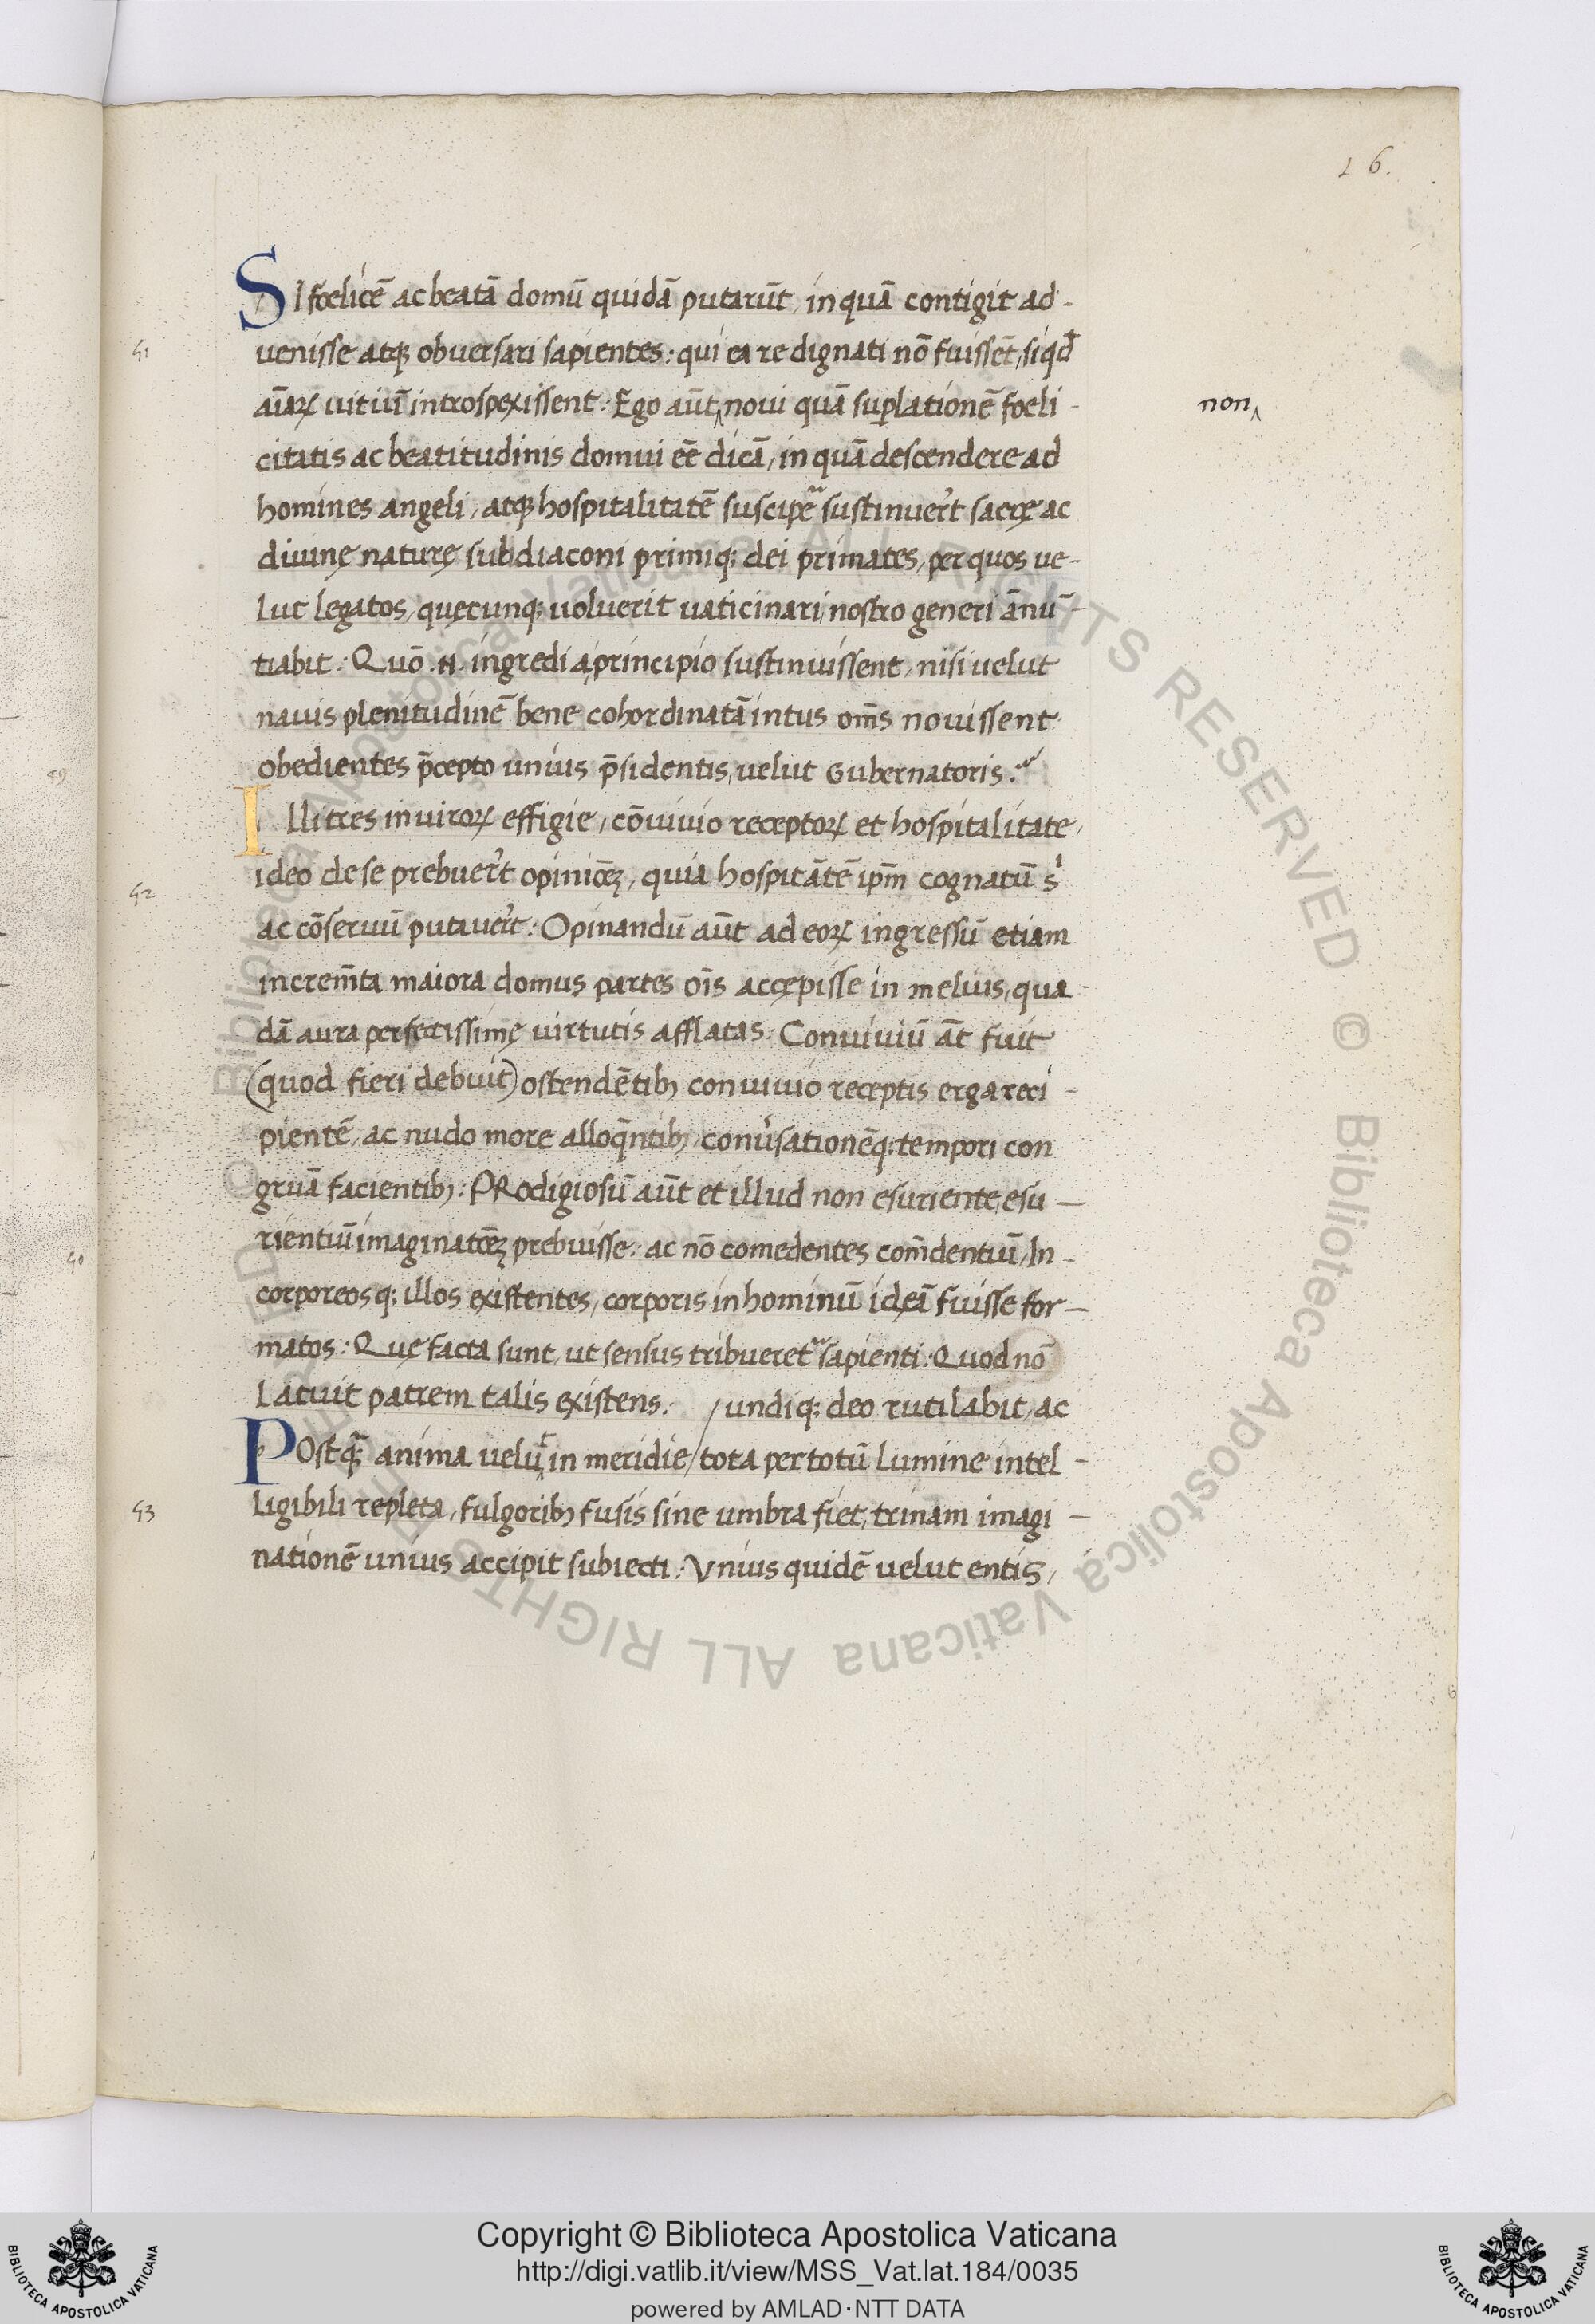 16.
SI fœlicē ac beatā domū quidā putarūt, in quā contigit ad-
41
venisse atq; obversari sapientes: qui ea re dignati nō fuissēt, siqd̄
aīarꝝ uitiū introspexissent: Ego aūt‸noui quā suꝑlationē fœli-
non‸
citatis ac beatitudinis domui eē dicā, in quā descendere ad
homines angeli, atq; hospitalitatē suscipe᷑ sustinuer̄t sacrę ac
diuinę naturę subdiaconi primiq; dei primates, per quos ue-
lut legatos, quęcunq; uoluerit uaticinari, nostro generi ānū-
tiabit: Quō .n. ingredi a principio sustinuissent, nisi uelut
nauis plenitudinē bene cohordinatā intus om̄s nouissent
obedientes p̄cepto unius p̄sidentis, uelut Gubernatoris:
Illi tres in uirorꝝ effigie, cōuiuio receptorꝝ et hospitalitate,
ideo de se prebuer̄t opiniōeꝫ, quia hospitātē ip̄m cognatū s
42
ac cōseruū putauer̄t: Opinandū aūt ad eorꝝ ingressū etiam
increm̄ta maiora domus partes oīs accępisse in melius, qua-
dā aura perfectissimę virtutis afflatas: Conuiuiū āt fuit
(quod fieri debuit) ostendētibꝫ conuiuio receptis erga reci-
pientē, ac nudo more alloq̄ntibꝫ, conūsationēq; tempori con
gruā facientibꝫ: PRodigiosū aūt et illud non esuriente, esu-
rientiū imaginatōeꝫ prebuisse: ac nō comedentes com̄dentiū, In-
corporeosq; illos existentes, corporis in hominū idęā fuisse for-
matos: Quę facta sunt, ut sensus tribueret᷑ sapienti: Quod nō
latuit patrem talis existens. / undiq; deo rutilabit, ac
POstq̄ anima velut in meridie / tota per totū lumine intel-
ligibili repleta, fulgoribꝫ fusis sine umbra fiet, trinam imagi-
43
nationē unius accipit subiecti: Vnius quidē uelut entis,
Copyright © Biblioteca Apostolica Vaticana
http://digi.vatlib.it/view/MSS_Vat.lat.184/0035
powered by AMLAD·NTT DATA